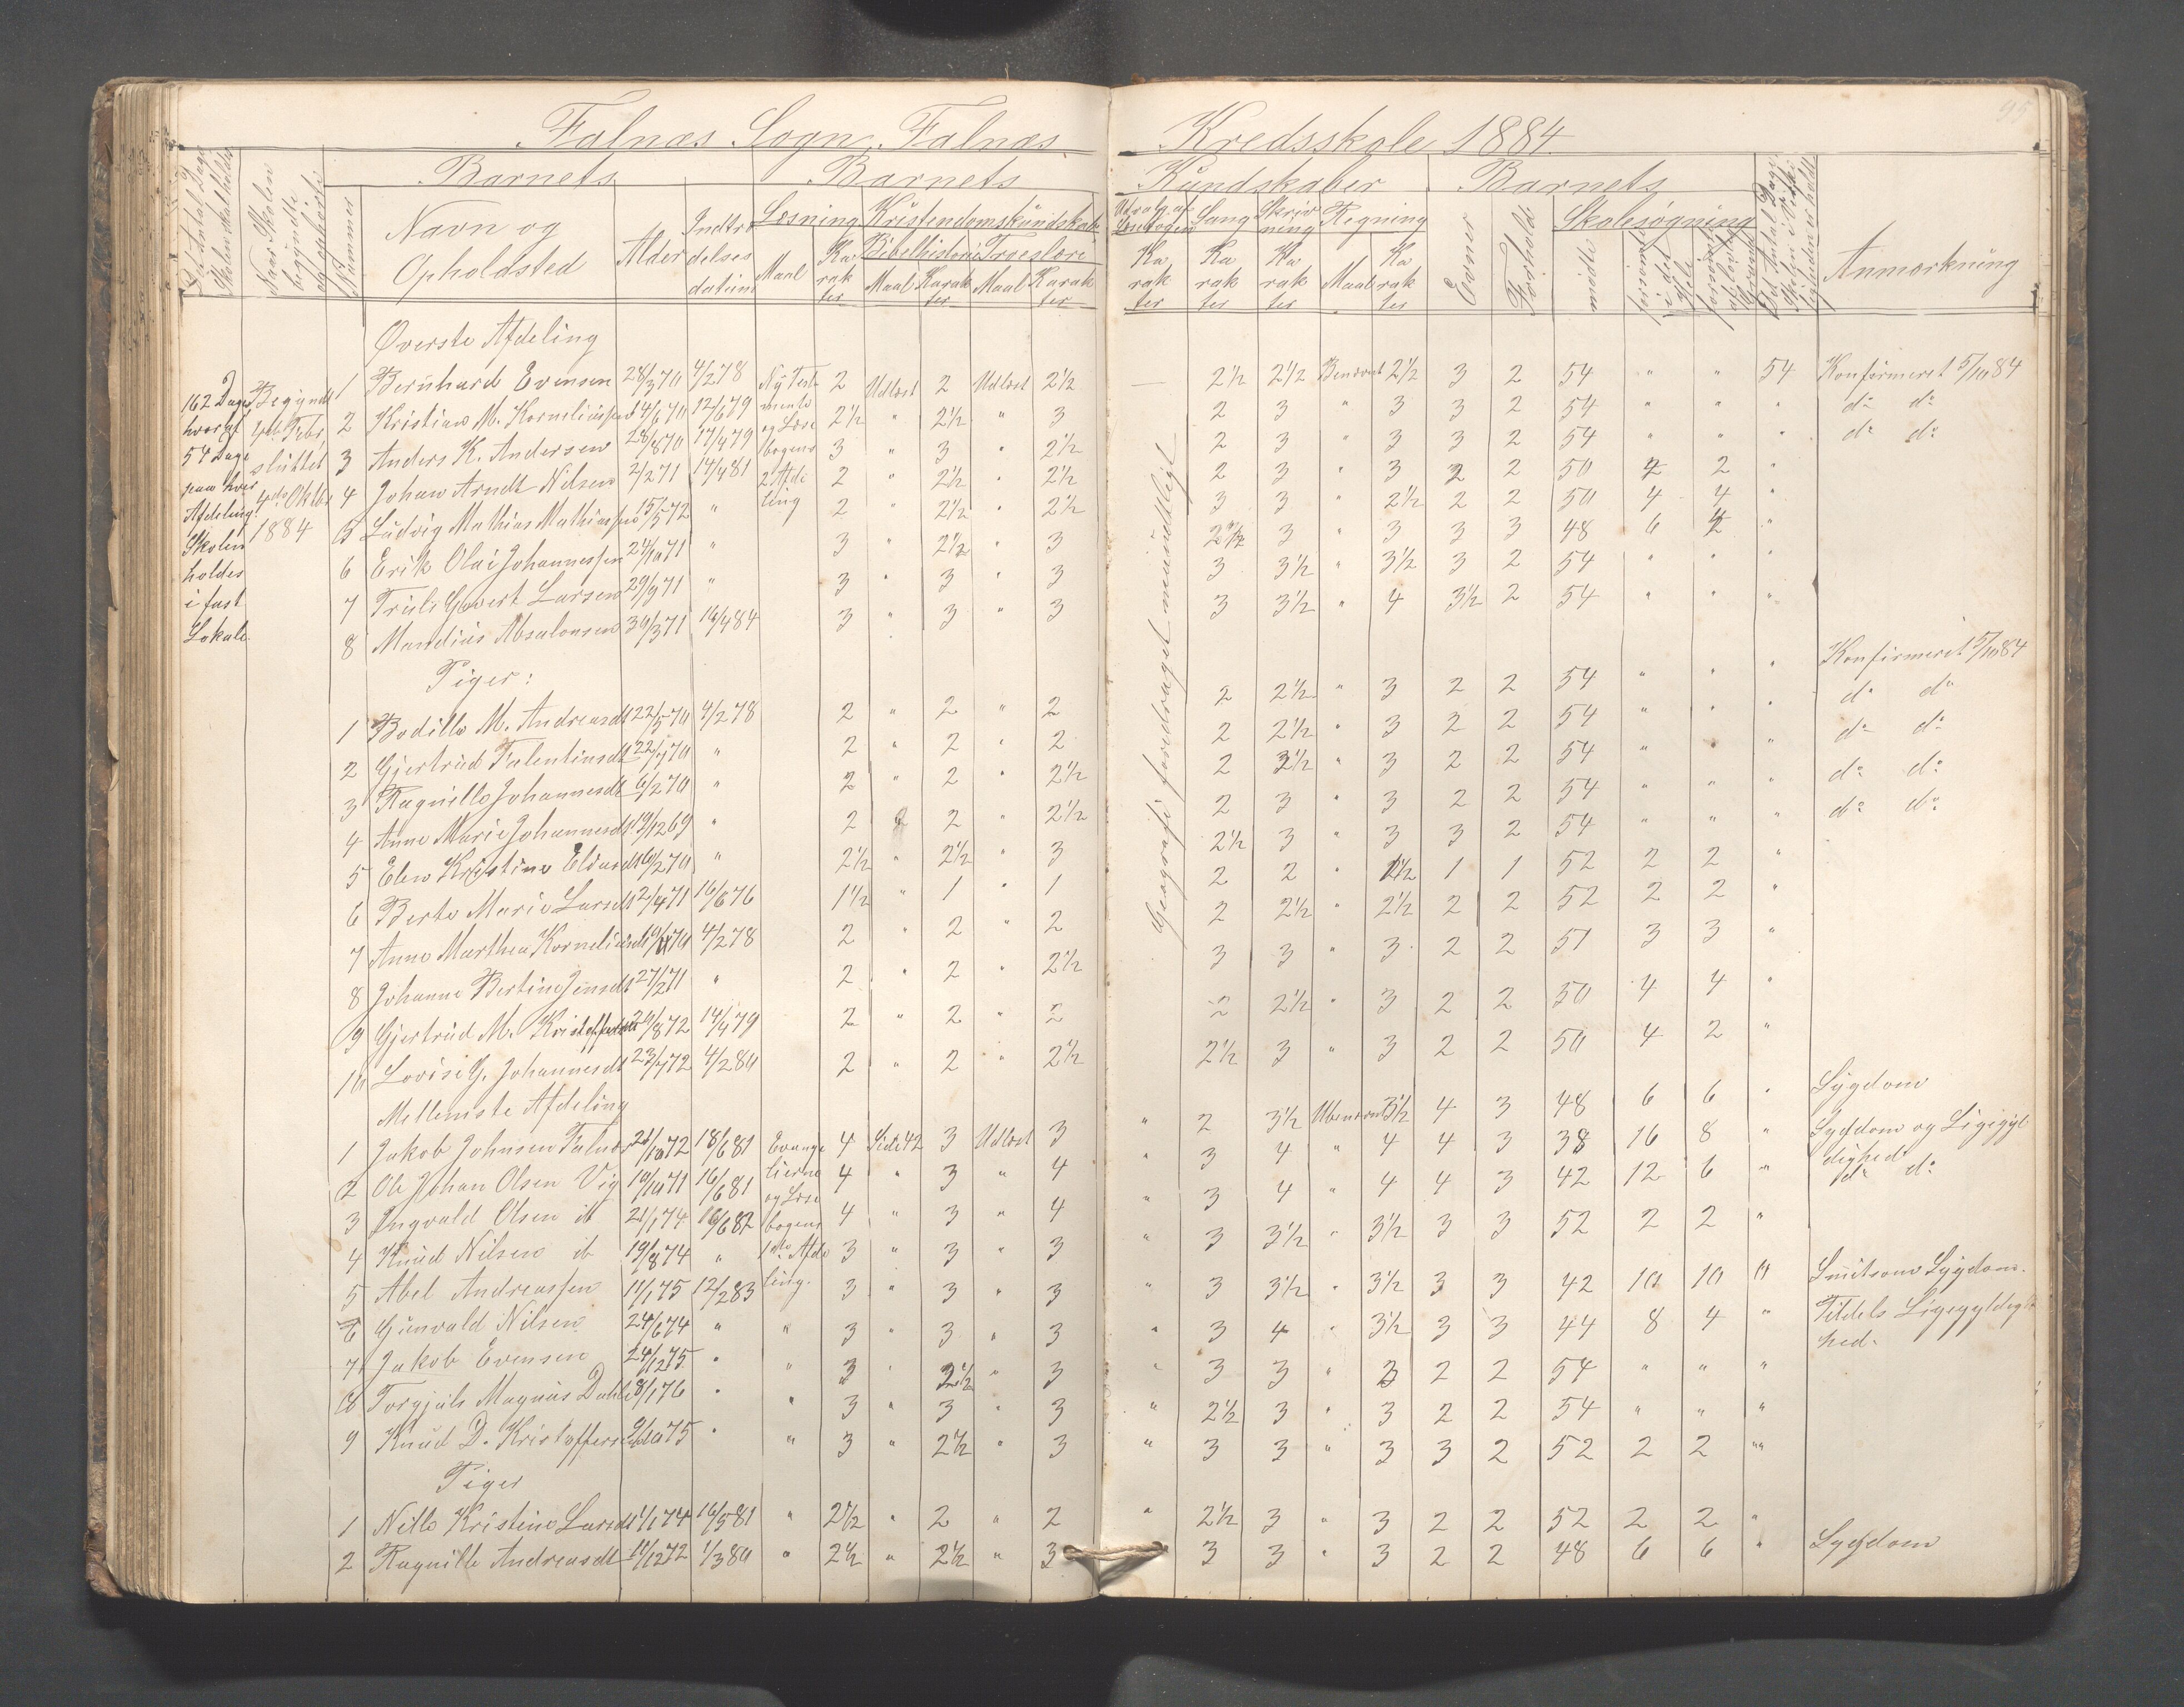 95
Falnæs Sogn, Falnæs Kredsskole 1884
Barnets Barnets Kundskaber Barnets
Det Antal Dage Skolen skal holdes
Naar Skolen begyndte og ophörte
Nummer
Navn og Opholdsted
Alder
Indtrædelses datum
Læsning Kristendomskundskab
Bibelhistorie Troeslære
Maal Karakter Maal Karakter Maal Karakter
Udvalg af Læsebogen Sang Skrivning Regning
Karakter Karakter Karakter Maal Karakter
Evner
Forhold
Skolesøgning
mødte
forsømt i det Hele
forsømt af lovlig Grund
Det Antal Dage Skolen i Virkeligheden er holdt
Anmærkning
162 Dage hvoraf 54 Dage paa hver Afdeling. Skolen holdes i fast Lokale.
Begyndt Febr. sluttet Oktbr 1884
Øverste Afdeling
1 Bernhard Evensen 28/3 70 4/2 78 Ny Testamente og Læsebogens 2 Afdeling 2 Udlæst 2 Udlæst 2½ — 2½ 2½ Benævnt 2½ 3 2 54 " " 54 Konfirmeret 5/10 84
2 Kristian M. Korneliussen 12/6 79 2½ " 2½ " 3 2 3 " 3 3 2 54 " " " do do
3 Anders K. Andersen 28/8 70 14/4 79 3 " 3 " 2½ 2 3 " 3 3 2 54 " " " do do
4 Johan Arndt Nilsen 2/2 71 14/4 81 2 " 2½ " 2½ 2 3 " 3 2 2 50 4 2 "
5 Ludvig Mathias Mathiassen 15/5 72 " 2 " 2½ " 2½ 3 3 " 2½ 2 2 50 4 4 "
6 Erik Olai Johannessen 24/10 71 " 3 " 2½ " 3 2½ 3 " 3 3 3 48 6 4 "
7 Truls Govert Larsen 29/9 71 " 3 " 3 " 3 3 3½ " 3½ 3 2 54 " " "
8 Mandius Absalonsen 30/3 71 16/4 84 3 " 3 " 3 3 3½ " 4 3½ 2 54 " " "
Geografi foredraget mundtligt
Piger:
1 Bodille M. Andreasdt 22/5 70 4/2 78 2 " 2 " 2 2 2½ " 3 2 2 54 " " " Konfirmeret 5/10 84
2 Gjertrud Falentinsdt 22/7 70 " 2 " 2 " 2 2 2½ " 3 2 2 54 " " " do do
3 Ragnille Johannesdt 6/2 70 " 2 " 2 " 2½ 2 3½ " 3 2 2 54 " " " do do
4 Anne Marie Johannesdt 19/12 69 " 2 " 2 " 2½ 2 3 " 3 2 2 54 " " " do do
5 Elen Kristine Eliasdt 16/2 70 " 2½ " 2½ " 3 2½ 3 " 3 3 2 54 " " " do do
6 Berte Marie Larsdt 12/4 71 16/6 76 1½ " 1 " 1 2 2 " 2½ 1 1 52 2 2 "
7 Anne Marthea Korneliusdt 4/2 78 2 " 2 " 2 2 2½ " 2½ 2 2 52 2 2 "
8 Johanne Bertine Jensdt 27/2 71 " 2 " 2 " 2½ 3 3 " 3 2 2 51 3 3 "
9 Gjertrud M. Kristoffersdt 20/8 72 14/4 79 2 " 2 " 2 2 2½ " 3 2 2 50 4 4 "
10 Lovise G. Johannesdt 23/7 72 4/2 80 2 " 2 " 2½ 2½ 3 " 3 2 2 50 4 2 "
Mellemste Afdeling
1 Jakob Johnsen Falnæs 21/10 72 18/6 81 Evangelierne og Læsebogens 1ste Afdeling. 4 Side 42 3 Udlæst 3 " 2 3½ Ubenævnt 3½ 4 3 48 6 6 " Sygdom
2 Ole Johan Olsen Vig 10/10 71 16/6 81 4 " 3 " 4 " 3 4 " 4 4 3 38 16 8 " Sygdom og Ligegyldighed
3 Ingvald Olsen ib 21/1 74 16/6 82 4 " 3 " 4 " 3 4 " 4 4 3 42 12 6 " do do
4 Knud Nilsen ib 19/8 74 " 3 " 3 " 3 " 3 3½ " 3½ 3 3 52 2 2 "
5 Abel Andreassen 11/1 75 12/2 83 3 " 3 " 3 " 3 3½ " 3½ 3 3 42 10 10 " Smitsom Sygdom.
6 Gunvald Nilsen 24/6 74 " " 3 " 3 " 3 " 3 4 " 3½ 3 3 44 8 4 " Tildels Ligegyldighed.
7 Jakob Evensen 24/12 75 " " 3 " 2½ " 3 " 3 3 " 3 2 2 54 " " "
8 Torgjuls Magnus Dahle 8/1 76 " " 3 " 3 " 3 " 2½ 3 " 3 2 2 54 " " "
9 Knud D. Kristoffersen 9/10 75 " " 3 " 2½ " 3 " 3 3 " 3 3 2 52 2 2 "
Piger
1 Nille Kristine Larsdt 11/1 74 16/5 81 " 2½ " 2 " 2 " 2½ 3 " 3 2 2 52 2 2 "
2 Ragnille Andreasdt 11/12 72 1/3 80 " 2½ " 2½ " 3 3 3 " 3 2 2 48 6 6 " Sygdom